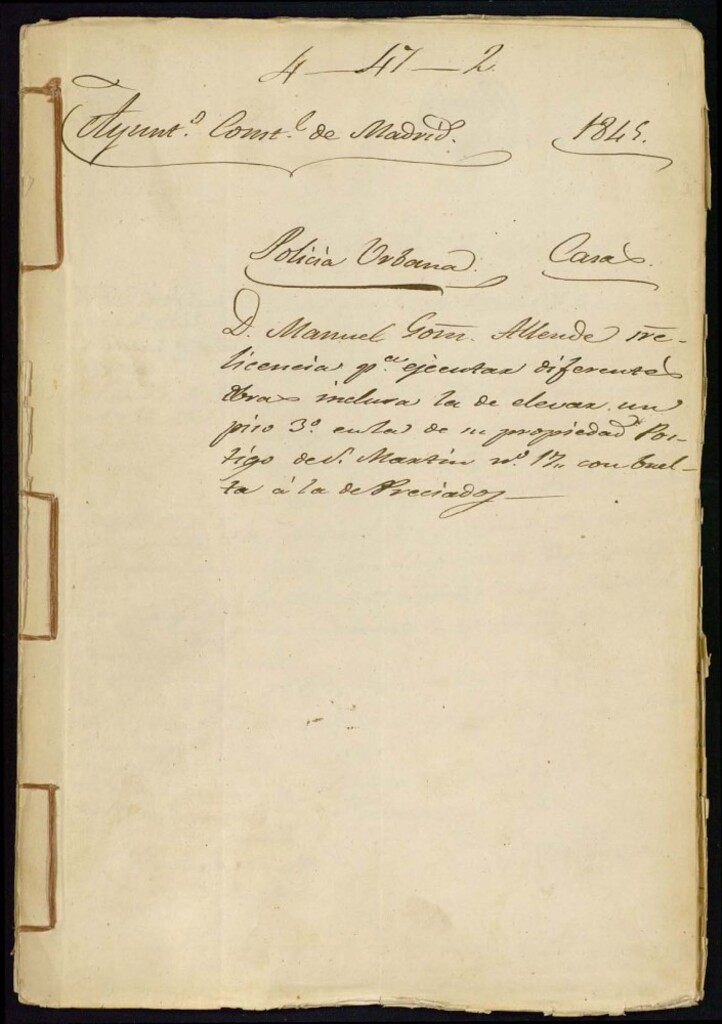 4 — 47 — 2
Ayunt.º Const.l de Madrid. 1845.
Policia Urbana. Casas.
D. Manuel Gom. Allende
licencia p.a ejecutar diferentes
obras inclusa la de elevar un
piso 3.º en la de su propiedad Pos-
tigo de S. Martin n.º 17,, con buel-
ta á la de Preciados —